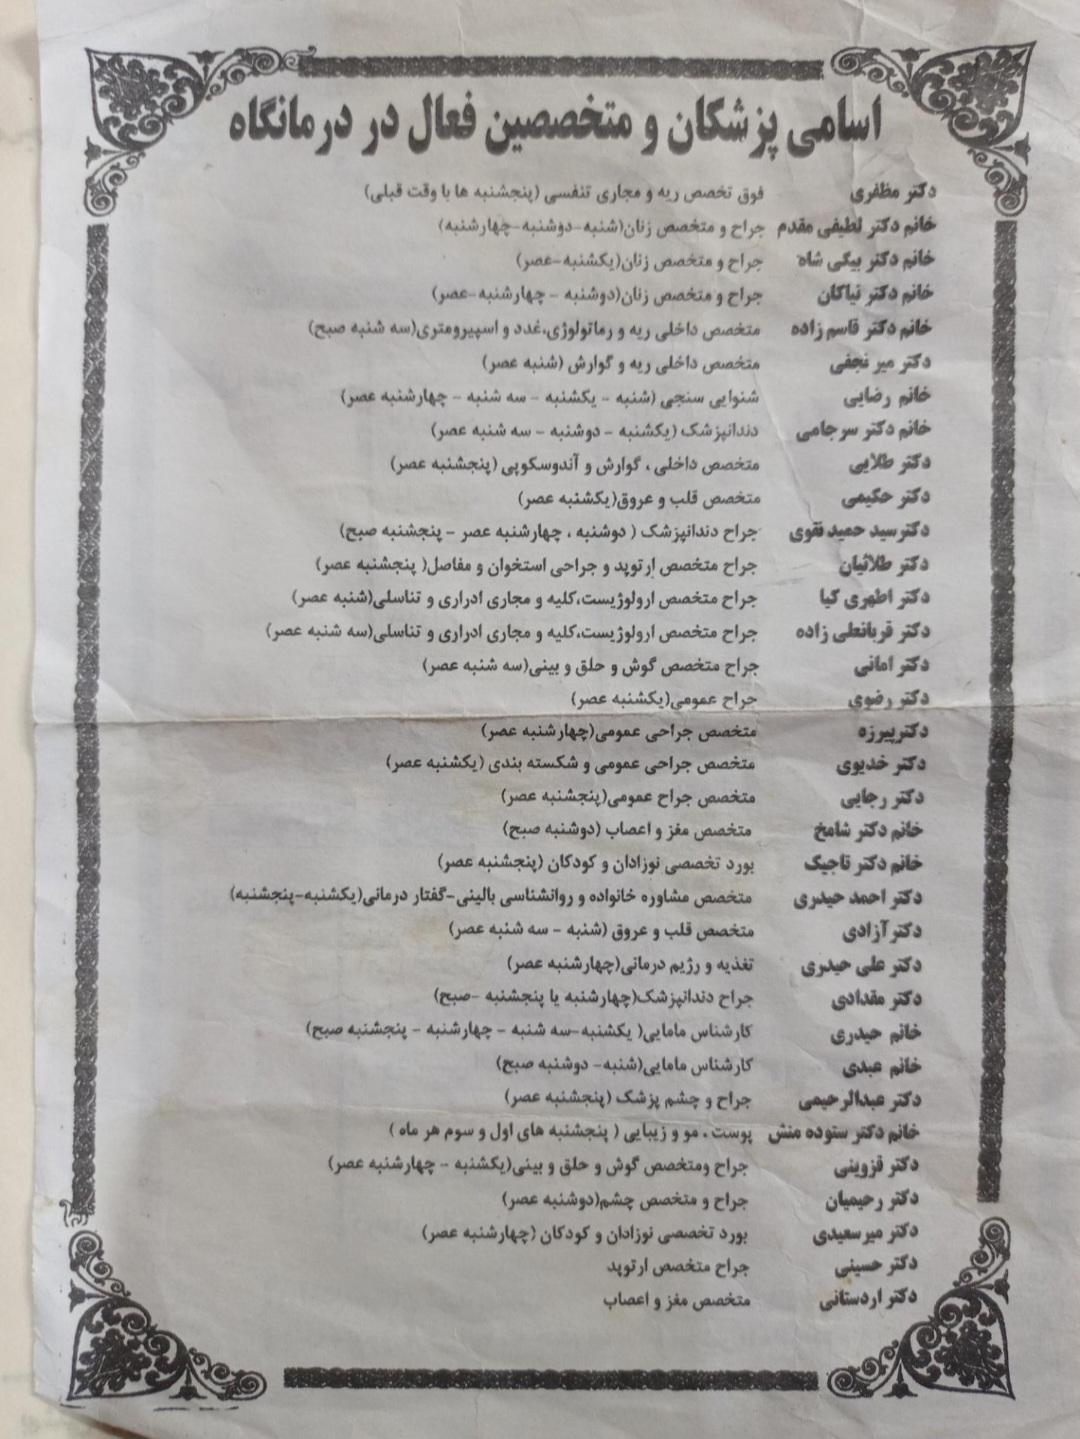 اسامی پزشکان و متخصصین فعال در درمانگاه
دکتر مظفری فوق تخصص ریه و مجاری تنفسی (پنجشنبه ها با وقت قبلی)
خانم دکتر لطیفی مقدم جراح و متخصص زنان(شنبه-دوشنبه-چهارشنبه)
خانم دکتر بیکی شاه جراح و متخصص زنان(یکشنبه-عصر)
خانم دکتر نیاکان جراح و متخصص زنان(دوشنبه - چهارشنبه-عصر)
خانم دکتر قاسم زاده متخصص داخلی ریه و رماتولوژی،غدد و اسپیرومتری(سه شنبه صبح)
دکتر میر نجفی متخصص داخلی ریه و گوارش (شنبه عصر)
خانم رضایی شنوایی سنجی (شنبه - یکشنبه - سه شنبه - چهارشنبه عصر)
خانم دکتر سرجامی دندانپزشک (یکشنبه - دوشنبه - سه شنبه عصر)
دکتر طلایی متخصص داخلی ، گوارش و آندوسکوپی (پنجشنبه عصر)
دکتر حکیمی متخصص قلب و عروق(یکشنبه عصر)
دکترسید حمید نقوی جراح دندانپزشک ( دوشنبه ، چهارشنبه عصر - پنجشنبه صبح)
دکتر طلائیان جراح متخصص ارتوپد و جراحی استخوان و مفاصل( پنجشنبه عصر)
دکتر اطهری کیا جراح متخصص ارولوژیست،کلیه و مجاری ادراری و تناسلی(شنبه عصر)
دکتر قربانعلی زاده جراح متخصص ارولوژیست،کلیه و مجاری ادراری و تناسلی(سه شنبه عصر)
دکتر امانی جراح متخصص گوش و حلق و بینی(سه شنبه عصر)
دکتر رضوی جراح عمومی(یکشنبه عصر)
دکترپیرزه متخصص جراحی عمومی(چهارشنبه عصر)
دکتر خدیوی متخصص جراحی عمومی و شکسته بندی (یکشنبه عصر)
دکتر رجایی متخصص جراح عمومی(پنجشنبه عصر)
خانم دکتر شامخ متخصص مغز و اعصاب (دوشنبه صبح)
خانم دکتر تاجیک بورد تخصصی نوزادان و کودکان (پنجشنبه عصر)
دکتر احمد حیدری متخصص مشاوره خانواده و روانشناسی بالینی-گفتار درمانی(یکشنبه-پنجشنبه)
دکتر آزادی متخصص قلب و عروق (شنبه - سه شنبه عصر)
دکتر علی حیدری تغذیه و رژیم درمانی(چهارشنبه عصر)
دکتر مقدادی جراح دندانپزشک(چهارشنبه یا پنجشنبه -صبح)
خانم حیدری کارشناس مامایی( یکشنبه-سه شنبه - چهارشنبه - پنجشنبه صبح)
خانم عبدی کارشناس مامایی(شنبه- دوشنبه صبح)
دکتر عبدالرحیمی جراح و چشم پزشک (پنجشنبه عصر)
خانم دکتر ستوده منش پوست ، مو و زیبایی ( پنجشنبه های اول و سوم هر ماه )
دکتر قزوینی جراح ومتخصص گوش و حلق و بینی(یکشنبه - چهارشنبه عصر)
دکتر رحیمیان جراح و متخصص چشم(دوشنبه عصر)
دکتر میرسعیدی بورد تخصصی نوزادان و کودکان (چهارشنبه عصر)
دکتر حسینی جراح متخصص ارتوپد
دکتر اردستانی متخصص مغز و اعصاب